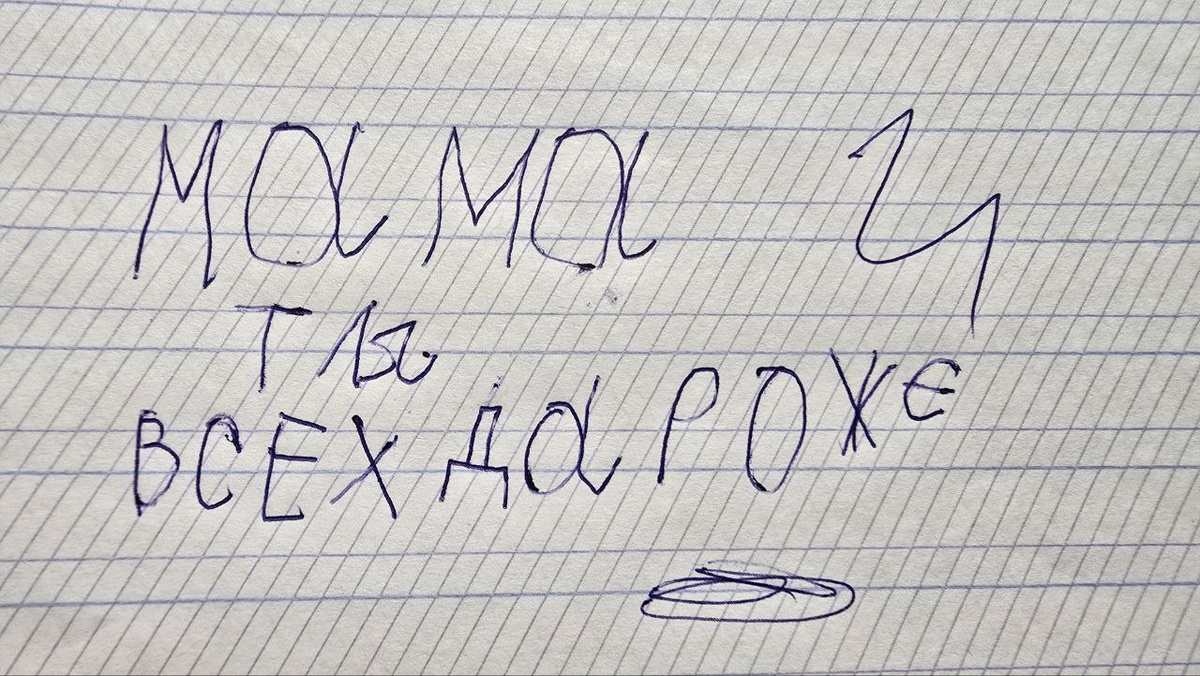 мама
ты
ВСЕХ ДаРОЖЕ